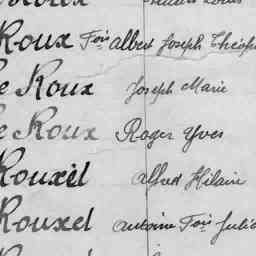 Roux Fois Albert Joseph Théop
e Roux Joseph Marie
e Roux Roger Yves
Rouxél Alfred Hilaire
Rouxel Antoine Fois Julie